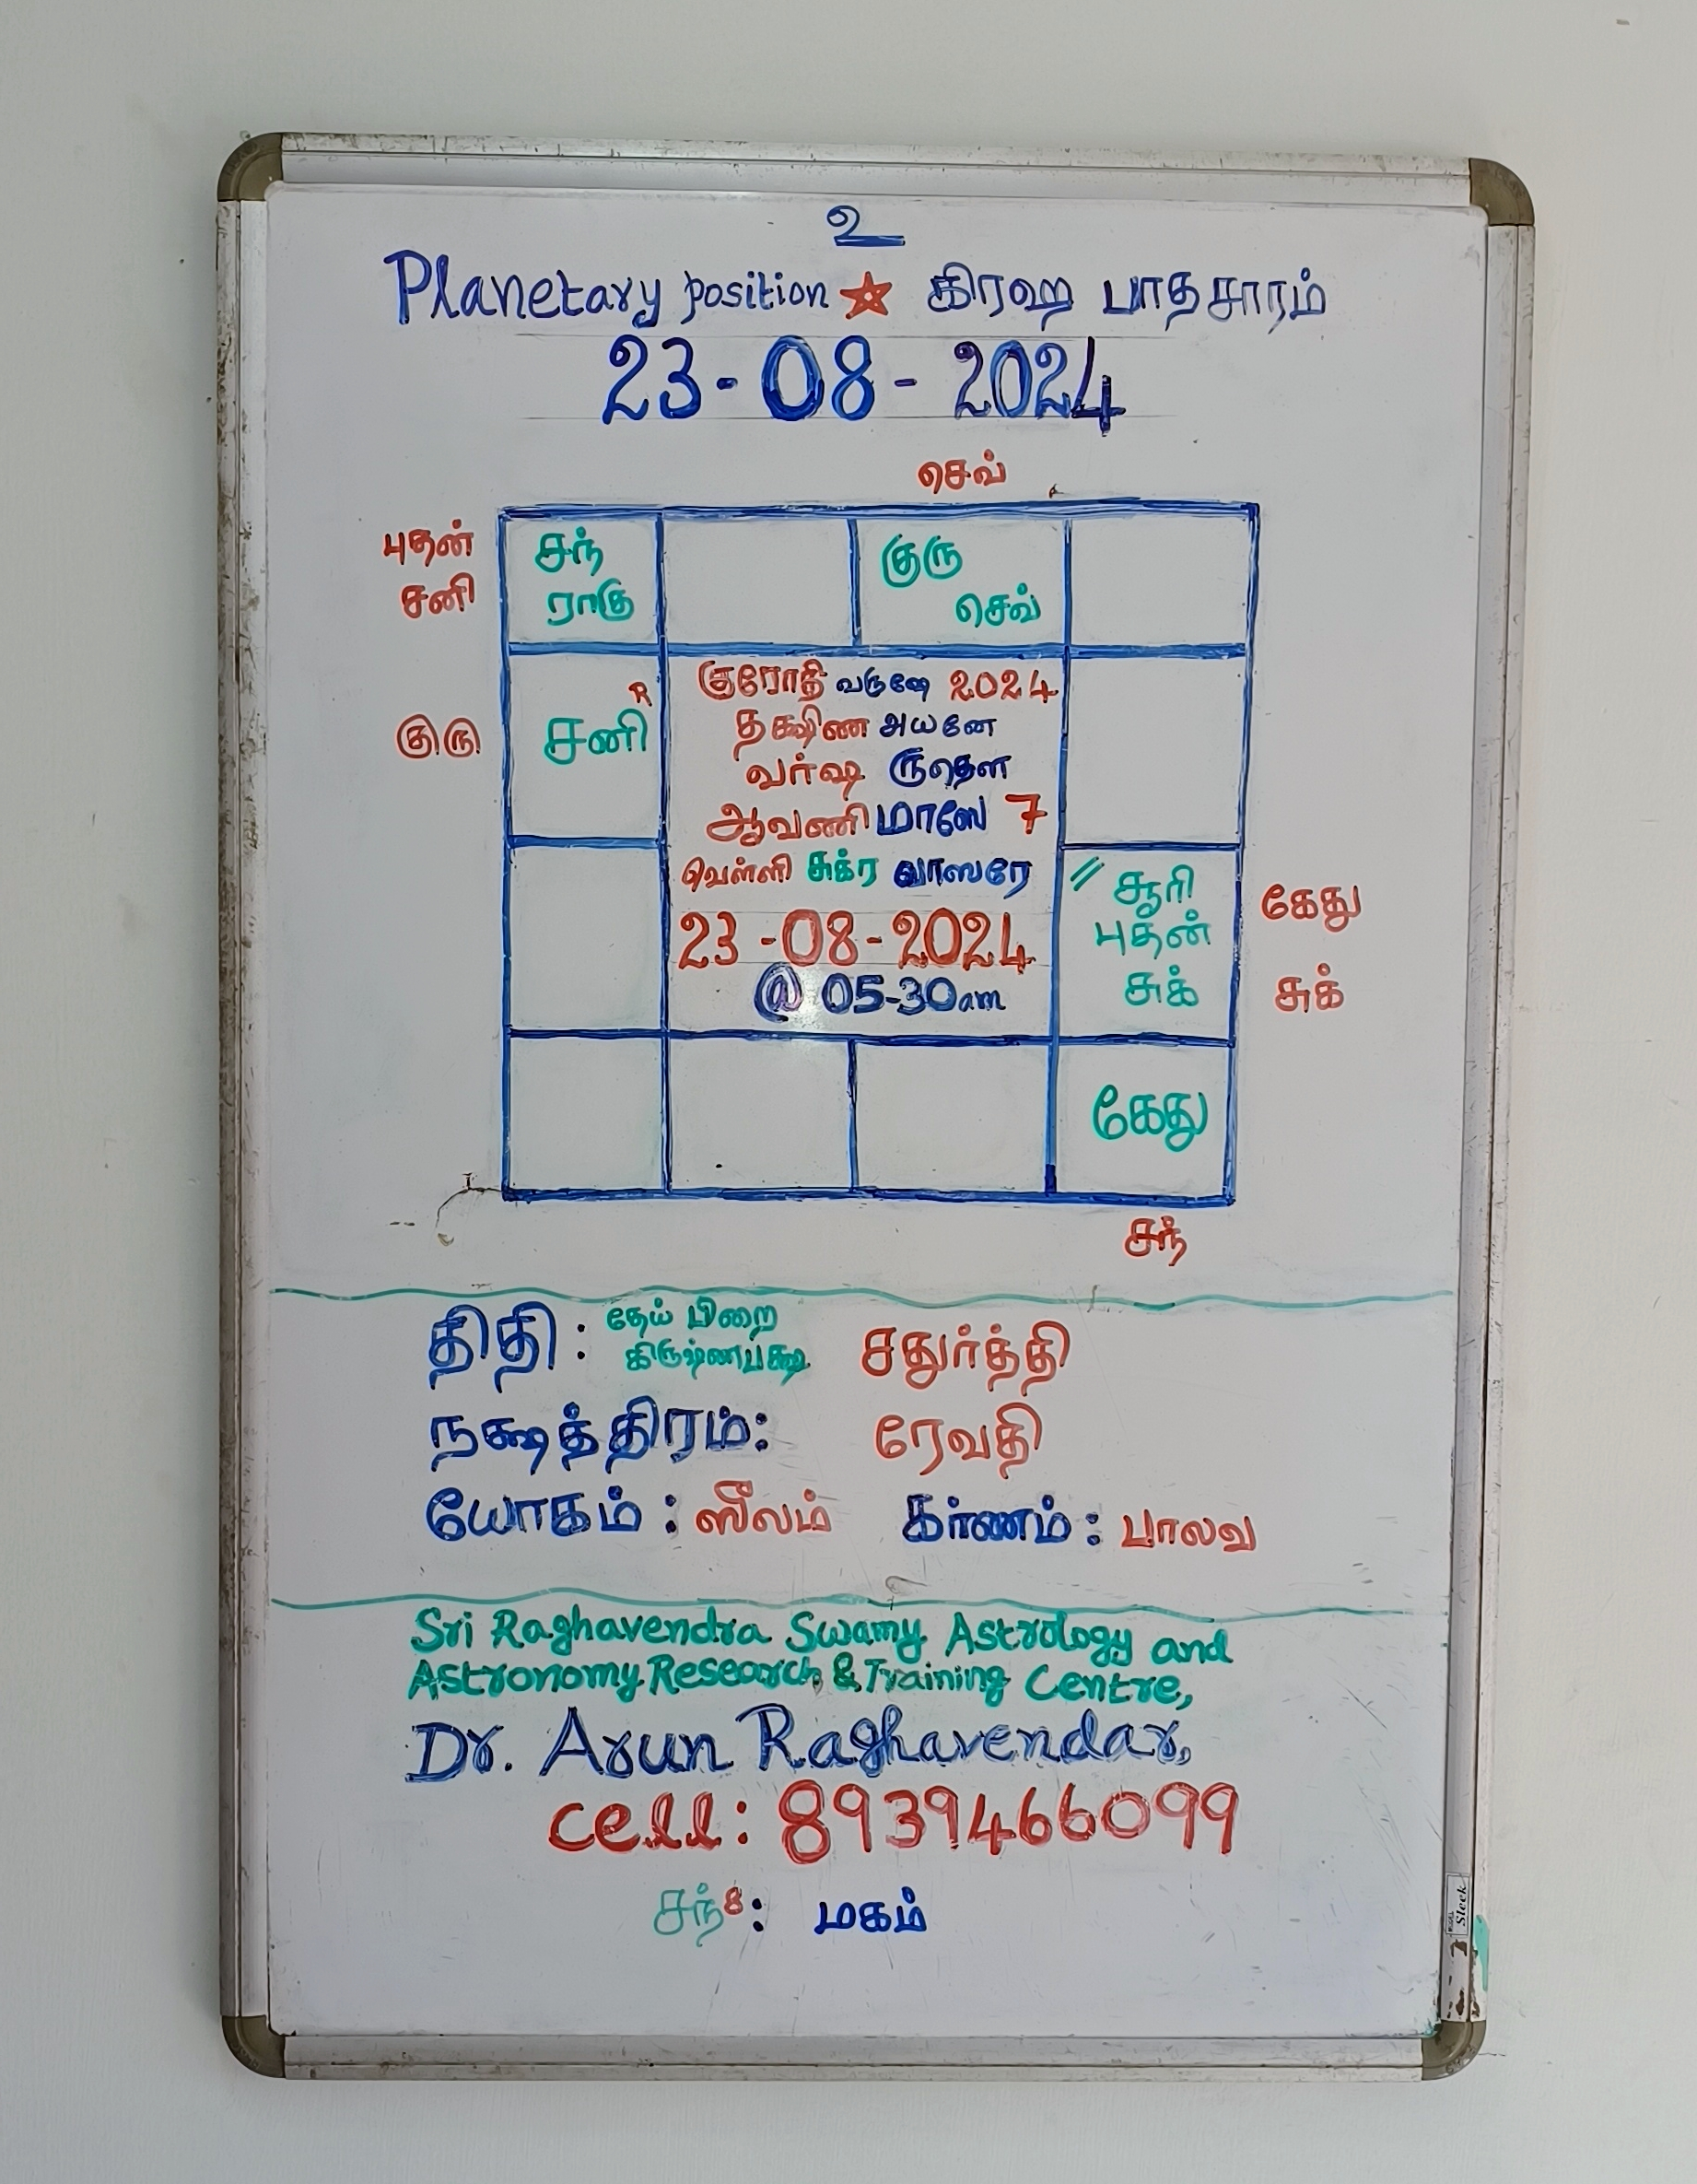 உ
Planetary position ☆ கிரஹ பாதசாரம்
23-08-2024
செவ்
புதன்
சனி
சந்
ராகு
குரு
செவ்
குரு
சனி R
குரோதி வருஷே 2024
தக்ஷிண அயனே
வர்ஷ ருதௌ
ஆவணி மாஸே 7
வெள்ளி சுக்ர வாஸரே
23-08-2024
@ 05-30am
// சூரி
புதன்
சுக்
கேது
சுக்
கேது
சந்
திதி : தேய் பிறை
கிருஷ்ணபக்ஷ சதுர்த்தி
நக்ஷத்திரம்: ரேவதி
யோகம் : ஸீலம் கர்ணம் : பாலவ
Sri Raghavendra Swamy Astrology and
Astronomy Research & Training Centre,
Dr. Arun Raghavendar,
cell: 8939466099
சந்8: மகம்
Sleek